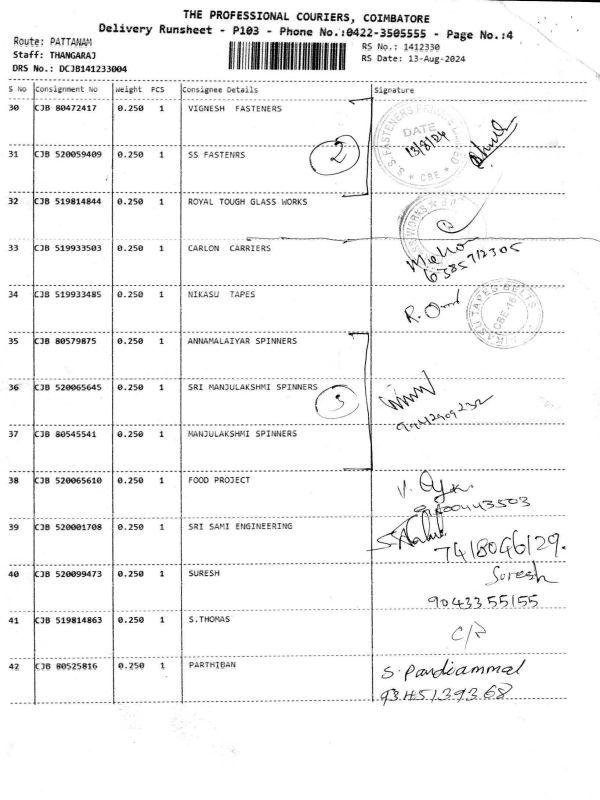 THE PROFESSIONAL COURIERS, COIMBATORE
Delivery Runsheet - P103 - Phone No.:0422-3505555 - Page No.:4
Route: PATTANAM
RS No.: 1412330
Staff: THANGARAJ
RS Date: 13-Aug-2024
DRS No.: DCJB141233004
S No Consignment No Weight PCS Consignee Details Signature
30 CJB 80472417 0.250 1 VIGNESH FASTENERS
DATE
13/8/24
31 CJB 520059409 0.250 1 SS FASTENRS 2
CBE
32 CJB 519814844 0.250 1 ROYAL TOUGH GLASS WORKS
33 CJB 519933503 0.250 1 CARLON CARRIERS
6385712305
34 CJB 519933485 0.250 1 NIKASU TAPES
NIKASU TAPES BELTS
CBE-16
35 CJB 80579875 0.250 1 ANNAMALAIYAR SPINNERS
36 CJB 520065645 0.250 1 SRI MANJULAKSHMI SPINNERS 3
37 CJB 80545541 0.250 1 MANJULAKSHMI SPINNERS
38 CJB 520065610 0.250 1 FOOD PROJECT
39 CJB 520001708 0.250 1 SRI SAMI ENGINEERING
7418046129.
40 CJB 520099473 0.250 1 SURESH Suresh
9043355155
41 CJB 519814863 0.250 1 S.THOMAS
42 CJB 80525816 0.250 1 PARTHIBAN S. Pandiammal